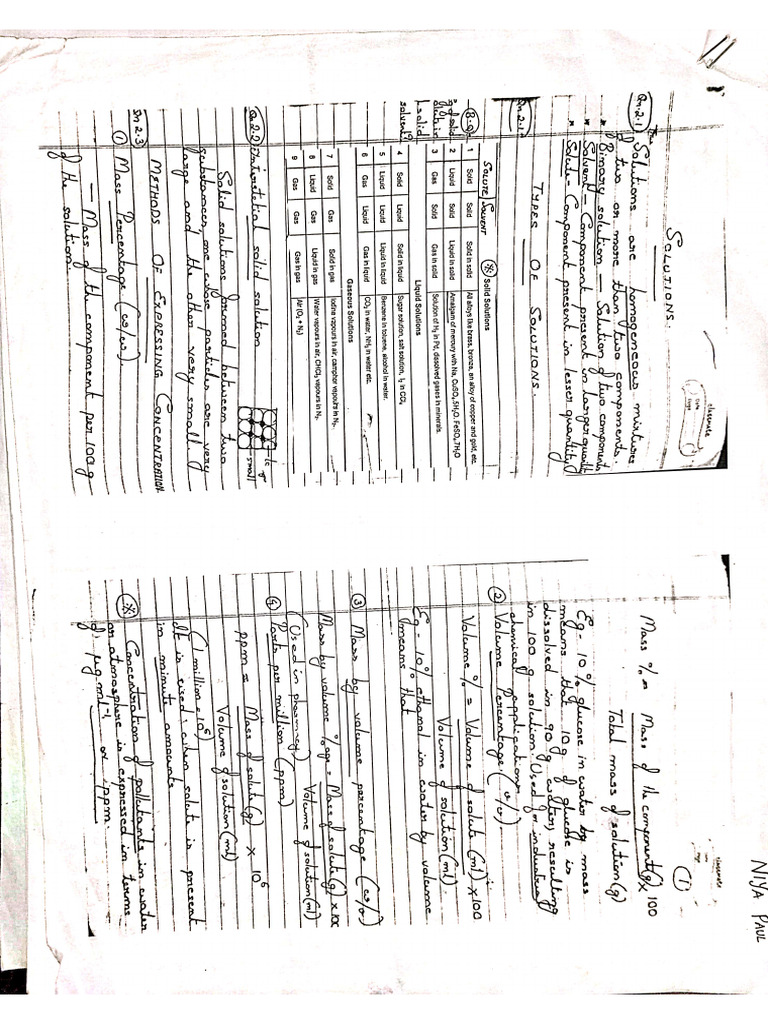 SOLUTIONS.
Qn.2.1 Solutions are homogeneous mixtures
of two or more than two components.
* Binary solution - Solution of two components
* Solvent - Component present in larger quantity
* Solute - Component present in lesser quantity
Qn.2.1 TYPES OF SOLUTIONS.
SOLUTE SOLVENT Solid Solutions
1 Solid Solid Solid in solid All alloys like brass, bronze, an alloy of copper and gold, etc.
2 Liquid Solid Liquid in solid Amalgam of mercury with Na, CuSO₄.5H₂O, FeSO₄.7H₂O
3 Gas Solid Gas in solid Solution of H₂ in Pd, dissolved gases in minerals.
Liquid Solutions
4 Solid Liquid Solid in liquid Sugar solution, salt solution, I₂ in CCl₄
5 Liquid Liquid Liquid in liquid Benzene in toluene, alcohol in water.
6 Gas Liquid Gas in liquid CO₂ in water, NH₃ in water etc.
Gaseous Solutions
7 Solid Gas Solid in gas Iodine vapours in air, camphor vapours in N₂.
8 Liquid Gas Liquid in gas Water vapours in air, CHCl₃ vapours in N₂.
9 Gas Gas Gas in gas Air (O₂ + N₂)
Qn.2.2 Interstetial solid solution
Solid solutions formed between two
substances, one whose particles are very
large and the other very small.
small
METHODS OF EXPRESSING CONCENTRATION
Qn 2.3
① Mass Percentage (w/w)
- Mass of the component per 100g
of the solution.
NIYA PAUL
(1)
Mass % = Mass of the component(g) × 100
Total mass of solution(g)
Eg - 10% glucose in water by mass
means that 10g of glucose is
dissolved in 90g water, resulting
in 100 g solution. Used for industrial
chemical applications
② Volume Percentage (v/v).
Volume % = Volume of solute (ml) × 100
Volume of solution (ml)
Eg - 10% ethanol in water by volume
means that
③ Mass by volume percentage (w/v)
Mass by volume %age = Mass of solute(g) × 100
Volume of solution(ml)
(Used in pharmacy)
④ Parts per million (ppm)
ppm = Mass of solute(g) × 10⁶
Volume of solution (ml)
(1 million = 10⁶)
It is used when solute is present
in minute amounts
Concentration of pollutants in water
or atmosphere is expressed in terms
of μg ml⁻¹ or ppm.